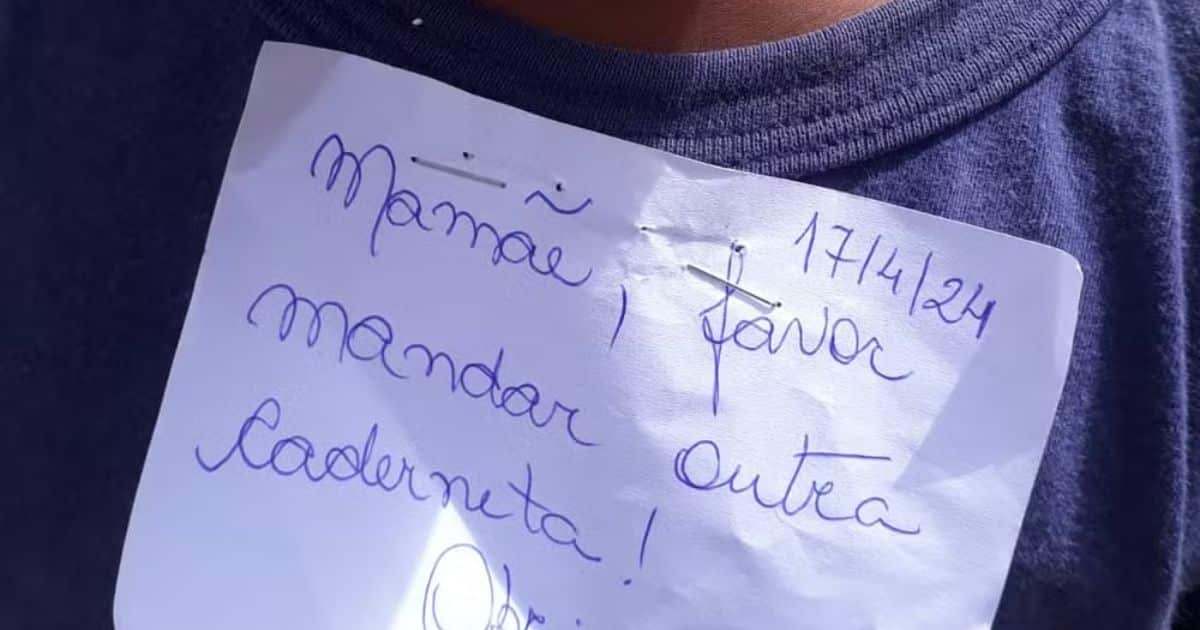 17/4/24
Mamãe, favor
mandar outra
Caderneta!